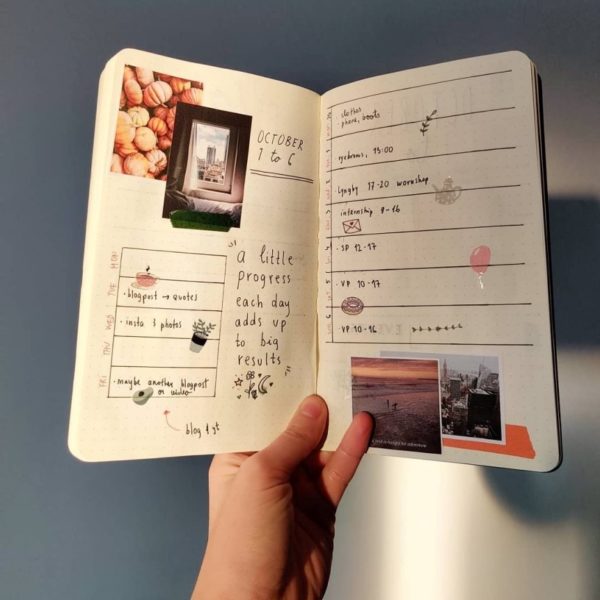 OCTOBER
1 to 6
MON
TUE
WED
THU
FRI
• blogpost → quotes
• insta 3 photos
• maybe another blogpost
or video
blog 1 yt
" a little
progress
each day
adds up
to big
results "
• phone, boots
eyebrows, 13:00
Lyngby 17-20 workshop
internship 9-16
• SP 12-17
• VP 10-17
• VP 10-16